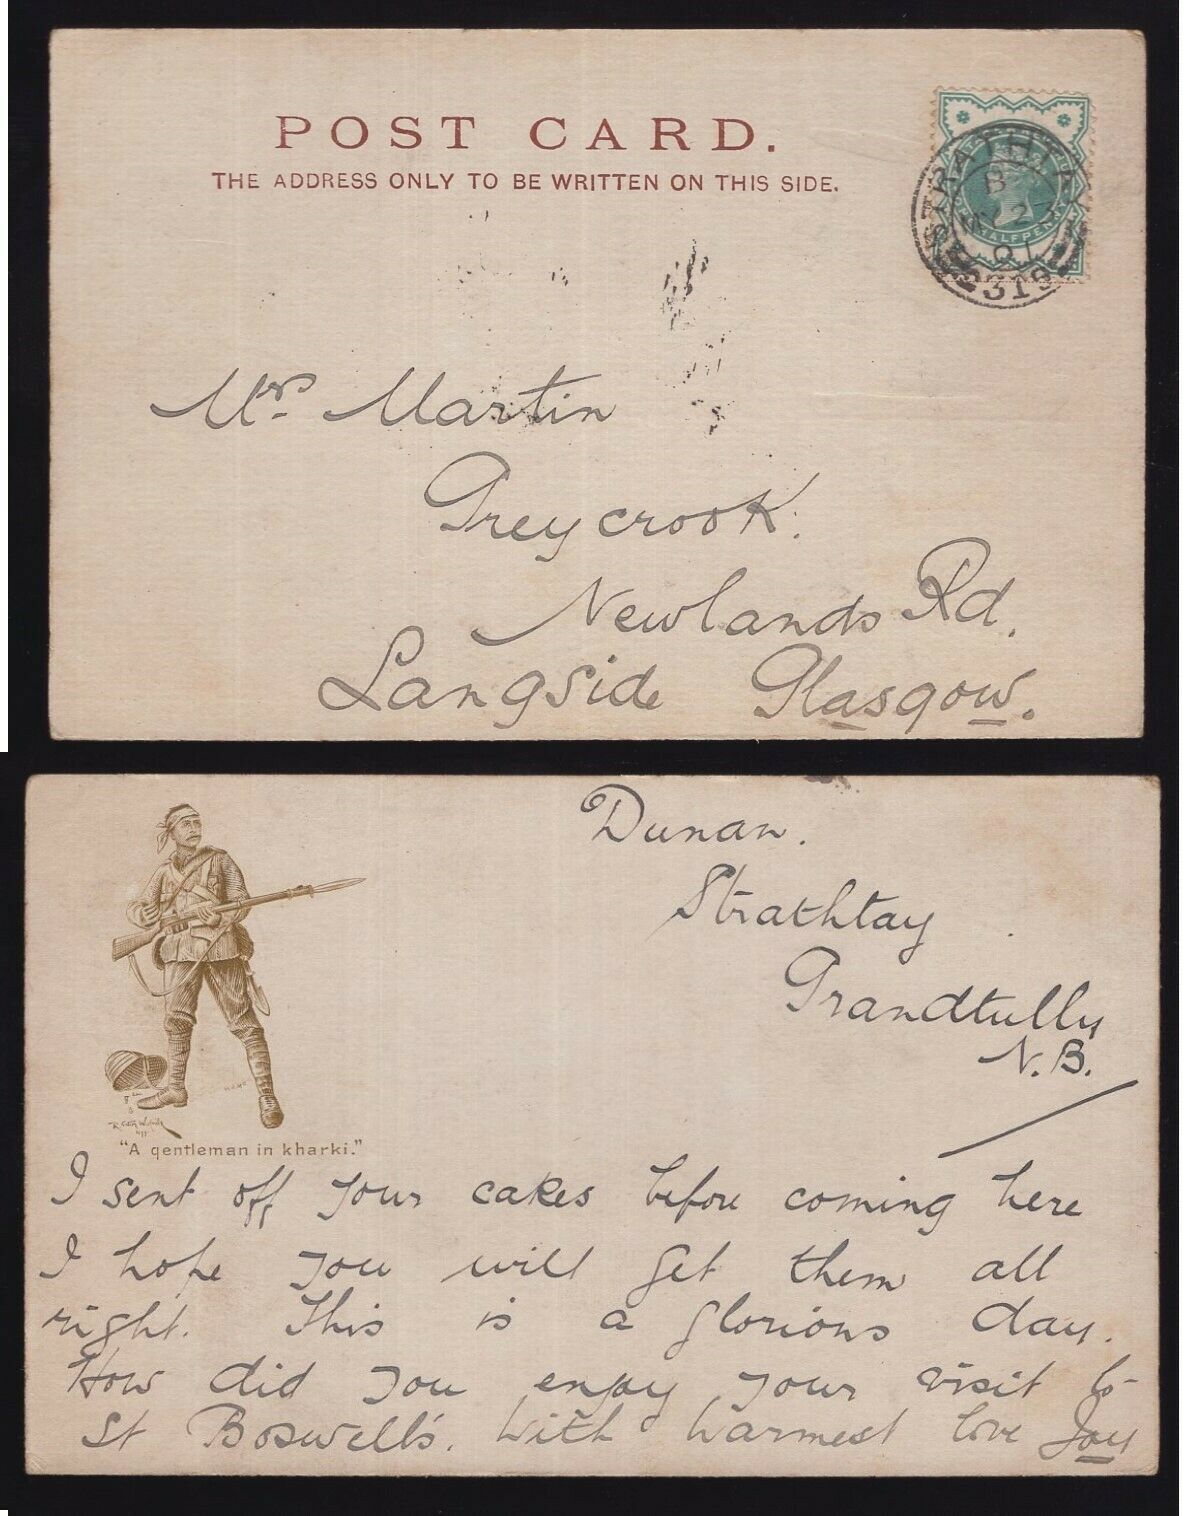 POST CARD.
THE ADDRESS ONLY TO BE WRITTEN ON THIS SIDE.
STRATHTAY
B
MY 23
01
319
HALFPENNY
Mrs Martin
Greycrook.
Newlands Rd.
Langside Glasgow.
Dunan.
Strathtay
Grandtully
N.B.
"A gentleman in kharki."
I sent off your cakes before coming here
I hope you will get them all
right. This is a glorious day.
How did you enjoy your visit to
St Boswell's. With warmest love Joy